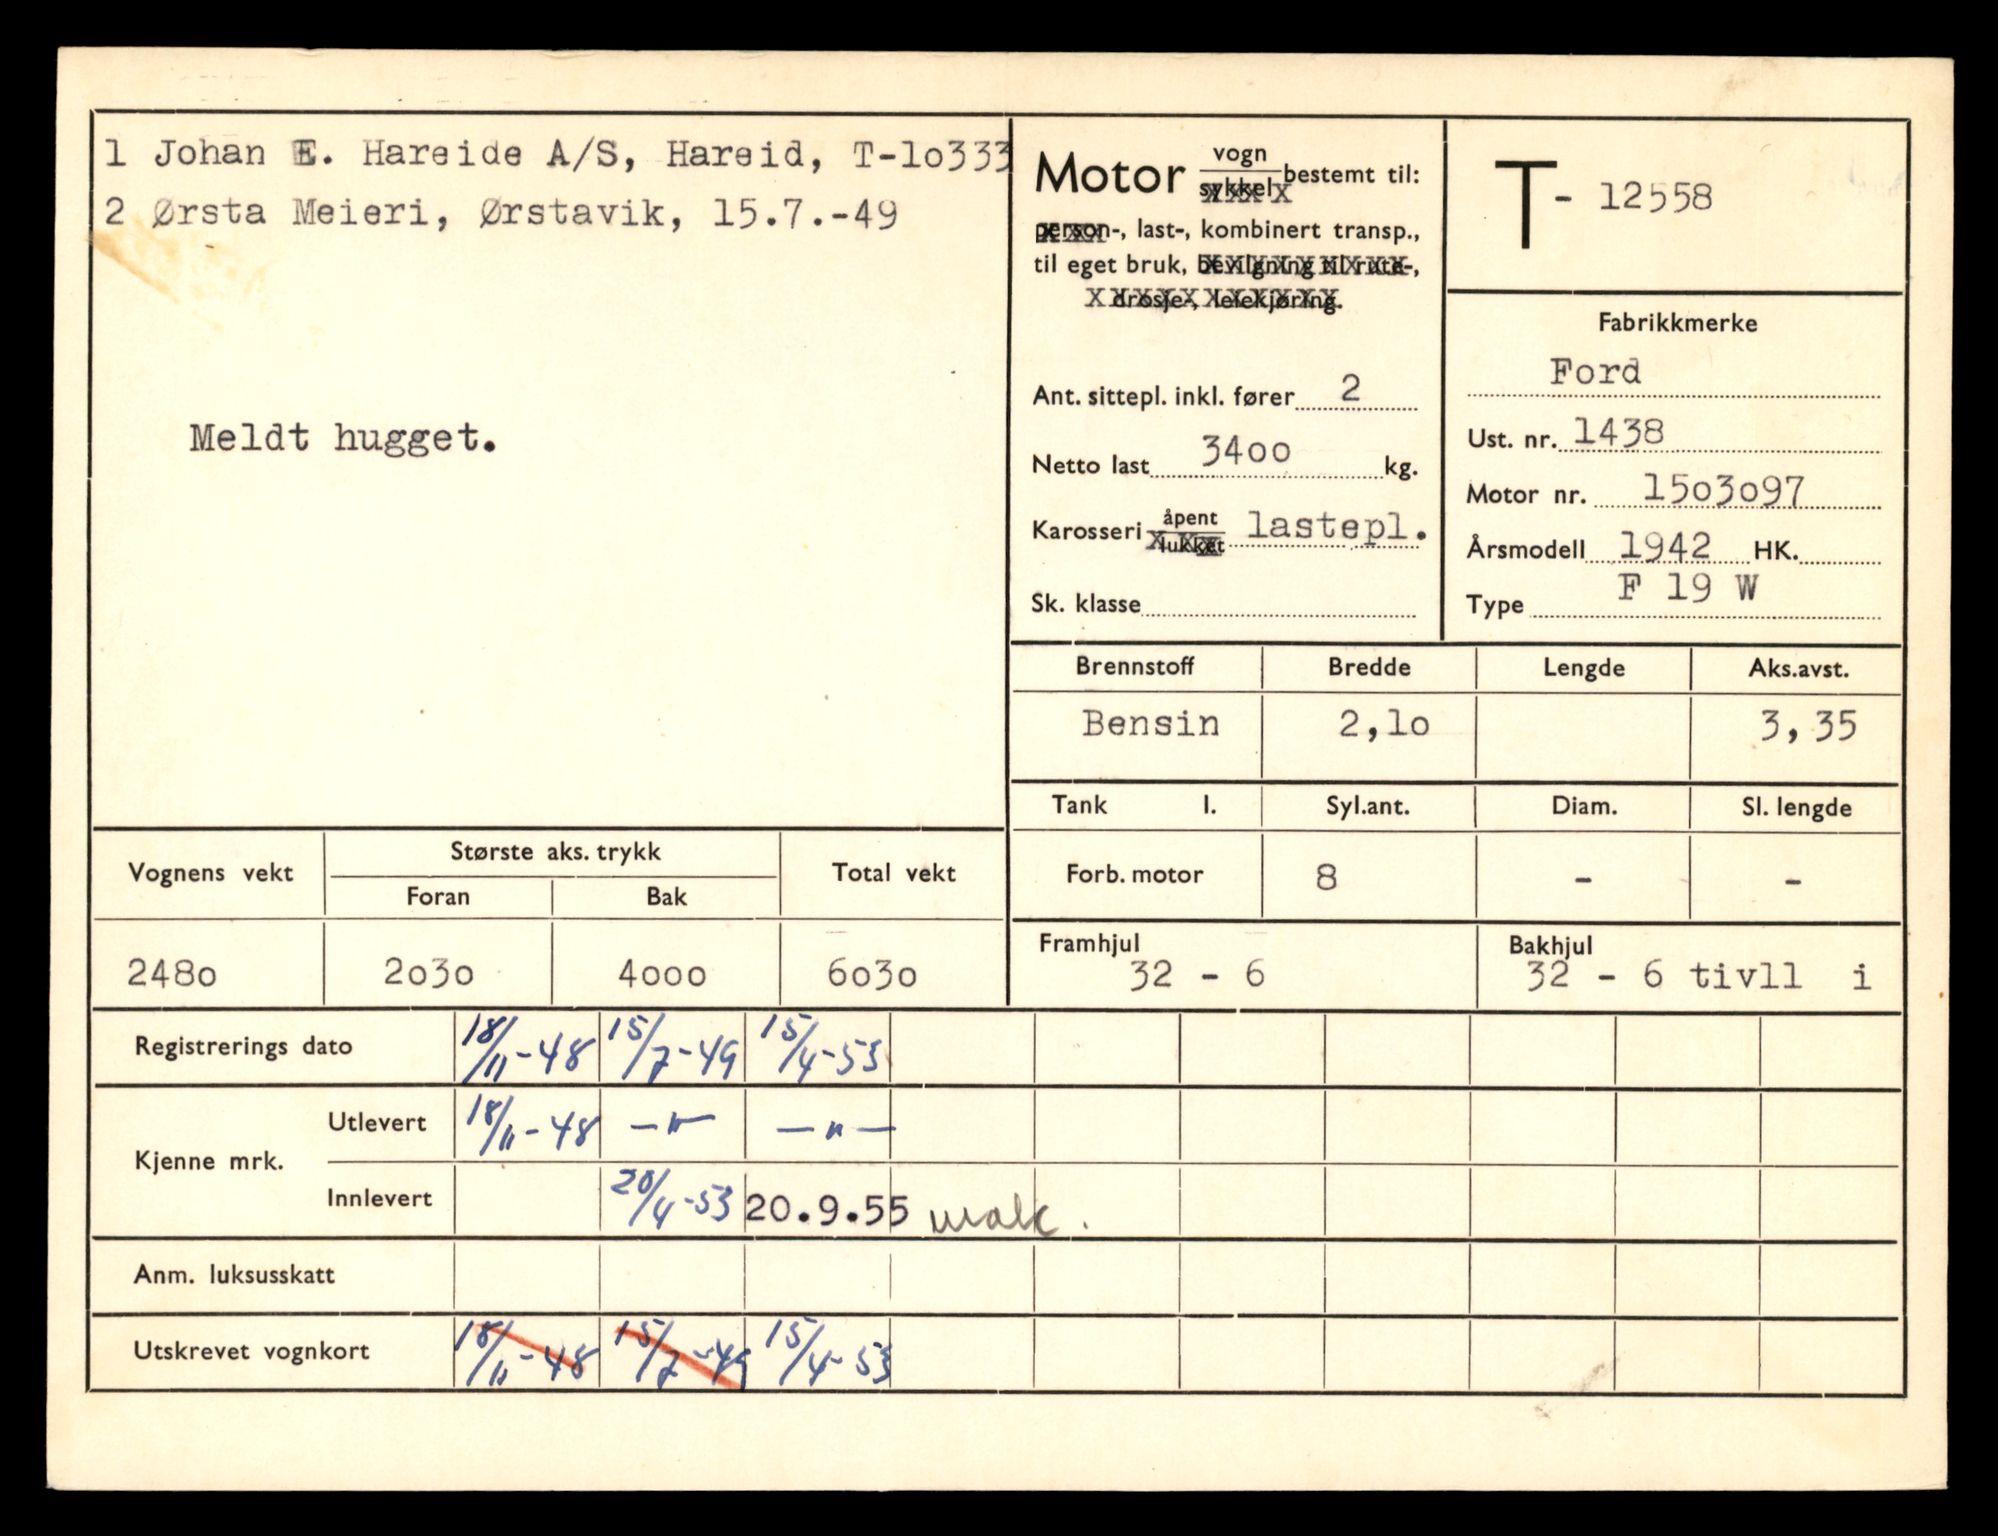 1 Johan E. Hareide A/S, Hareid, T-lo333
2 Ørsta Meieri, Ørstavik, 15.7.-49
Meldt hugget.
Motor vogn sykkel bestemt til:
person-, last-, kombinert transp.,
til eget bruk, bevilgning til rute-,
drosje-, leiekjøring.
Ant. sittepl. inkl. fører 2
Netto last 34oo kg.
Karosseri åpent lukket lastepl.
Sk. klasse
T- 12558
Fabrikkmerke
Ford
Ust. nr. 1438
Motor nr. 15o3o97
Årsmodell 1942 HK.
Type F 19 W
Brennstoff Bredde Lengde Aks.avst.
Bensin 2,lo 3,35
Tank l. Syl.ant. Diam. Sl. lengde
Forb. motor 8 - -
Framhjul Bakhjul
32 - 6 32 - 6 tivll i
Vognens vekt Største aks. trykk Total vekt
Foran Bak
248o 2o3o 4ooo 6o3o
Registrerings dato 18/11-48 15/7-49 15/4-53
Kjenne mrk.
Utlevert 18/11-48 —"— —"—
Innlevert 20/4-53 20.9.55 mak.
Anm. luksusskatt
Utskrevet vognkort 18/11-48 15/7-49 15/4-53